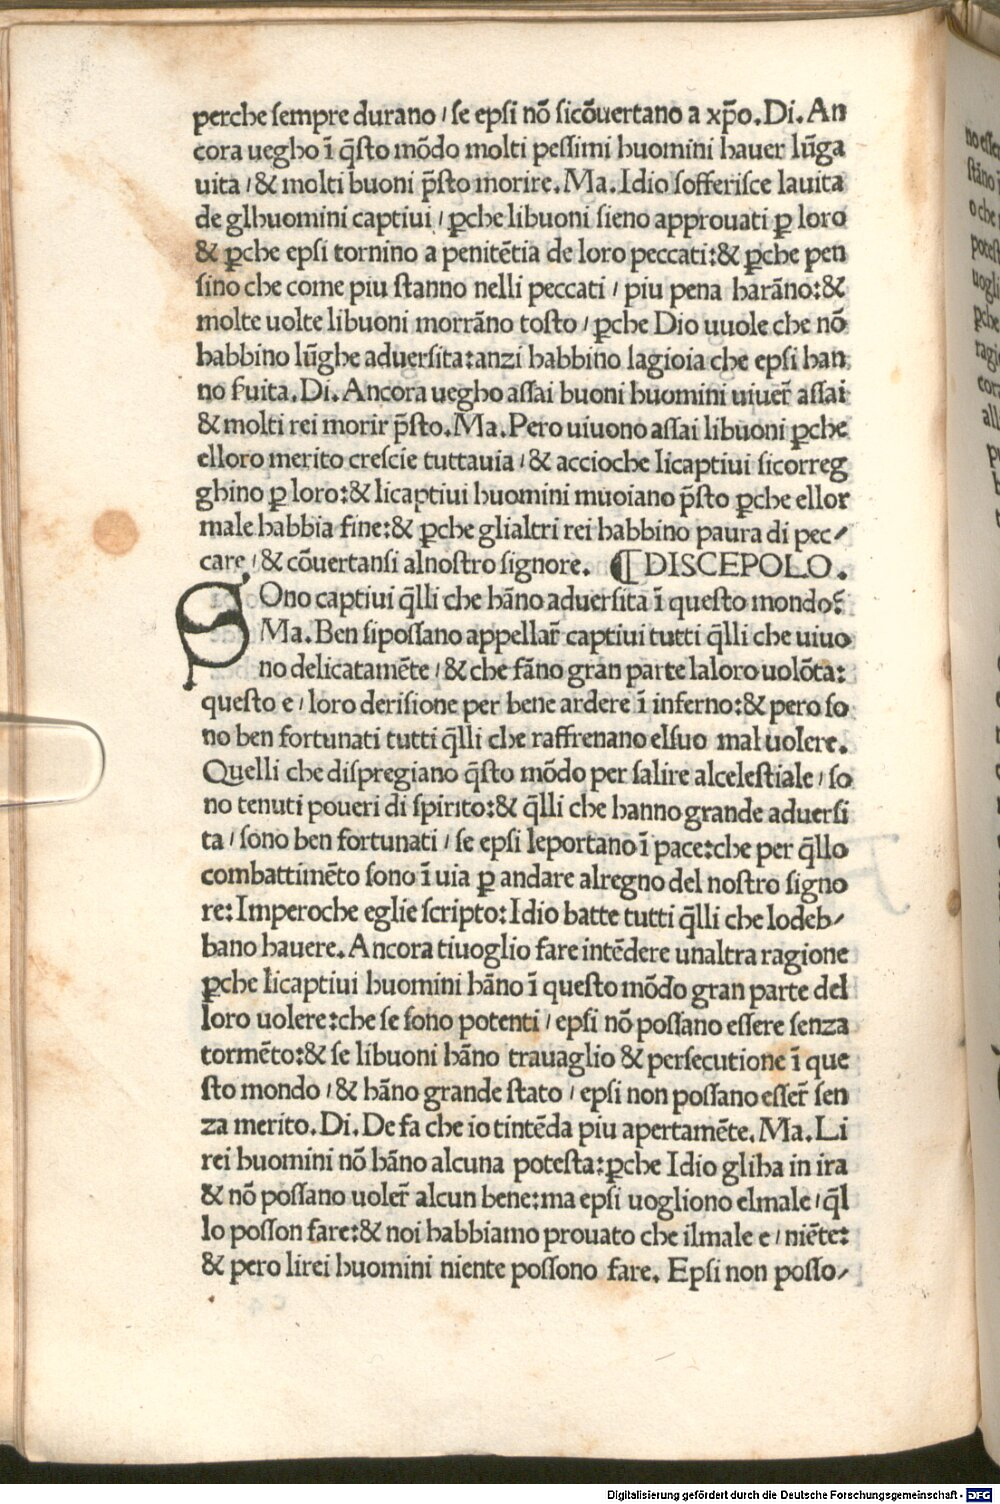 perche ſempre durano / ſe epſi nō ſicōuertano a xp̄o. Di. An
cora uegho ī q̄ſto mōdo molti peſſimi huomini hauer lūga
uita / & molti buoni p̄ſto morire. Ma. Idio ſofferiſce lauita
de glhuomini captiui / ꝑche libuoni ſieno approuati ꝑ loro
& ꝑche epſi tornino a penitētia de loro peccati: & ꝑche pen
ſino che come piu ſtanno nelli peccati / piu pena harāno: &
molte uolte libuoni morrāno toſto / ꝑche Dio uuole che nō
habbino lūghe aduerſita: anzi habbino lagioia che epſi han
no ſuita. Di. Ancora uegho aſſai buoni huomini uiuer̄ aſſai
& molti rei morir p̄ſto. Ma. Pero uiuono aſſai libuoni ꝑche
elloro merito creſcie tuttauia / & accioche licaptiui ſicorreg
ghino ꝑ loro: & licaptiui huomini muoiano p̄ſto ꝑche ellor
male habbia fine: & ꝑche glialtri rei habbino paura di pec/
care / & cōuertanſi alnoſtro ſignore. ¶ DISCEPOLO.
SOno captiui q̄lli che hāno aduerſita ī queſto mondo?
Ma. Ben ſipoſſano appellar̄ captiui tutti q̄lli che uiuo
no delicatamēte / & che fāno gran parte laloro uolōta:
queſto e / loro deriſione per bene ardere ī inferno: & pero ſo
no ben fortunati tutti q̄lli che raffrenano elſuo mal uolere.
Quelli che diſpregiano q̄ſto mōdo per ſalire alceleſtiale / ſo
no tenuti poueri di ſpirito: & q̄lli che hanno grande aduerſi
ta / ſono ben fortunati / ſe epſi leportano ī pace: che per q̄llo
combattimēto ſono ī uia ꝑ andare alregno del noſtro ſigno
re: Imperoche eglie ſcripto: Idio batte tutti q̄lli che lodeb/
bano hauere. Ancora tiuoglio fare intēdere unaltra ragione
ꝑche licaptiui huomini hāno ī queſto mōdo gran parte del
loro uolere: che ſe ſono potenti / epſi nō poſſano eſſere ſenza
tormēto: & ſe libuoni hāno trauaglio & perſecutione ī que
ſto mondo / & hāno grande ſtato / epſi non poſſano eſſer̄ ſen
za merito. Di. De fa che io tintēda piu apertamēte. Ma. Li
rei huomini nō hāno alcuna poteſta: ꝑche Idio gliha in ira
& nō poſſano uoler̄ alcun bene: ma epſi uogliono elmale / q̄l
lo poſſon fare: & noi habbiamo prouato che ilmale e / niēte:
& pero lirei huomini niente poſſono fare. Epſi non poſſo/
Digitalisierung gefördert durch die Deutsche Forschungsgemeinschaft - DFG